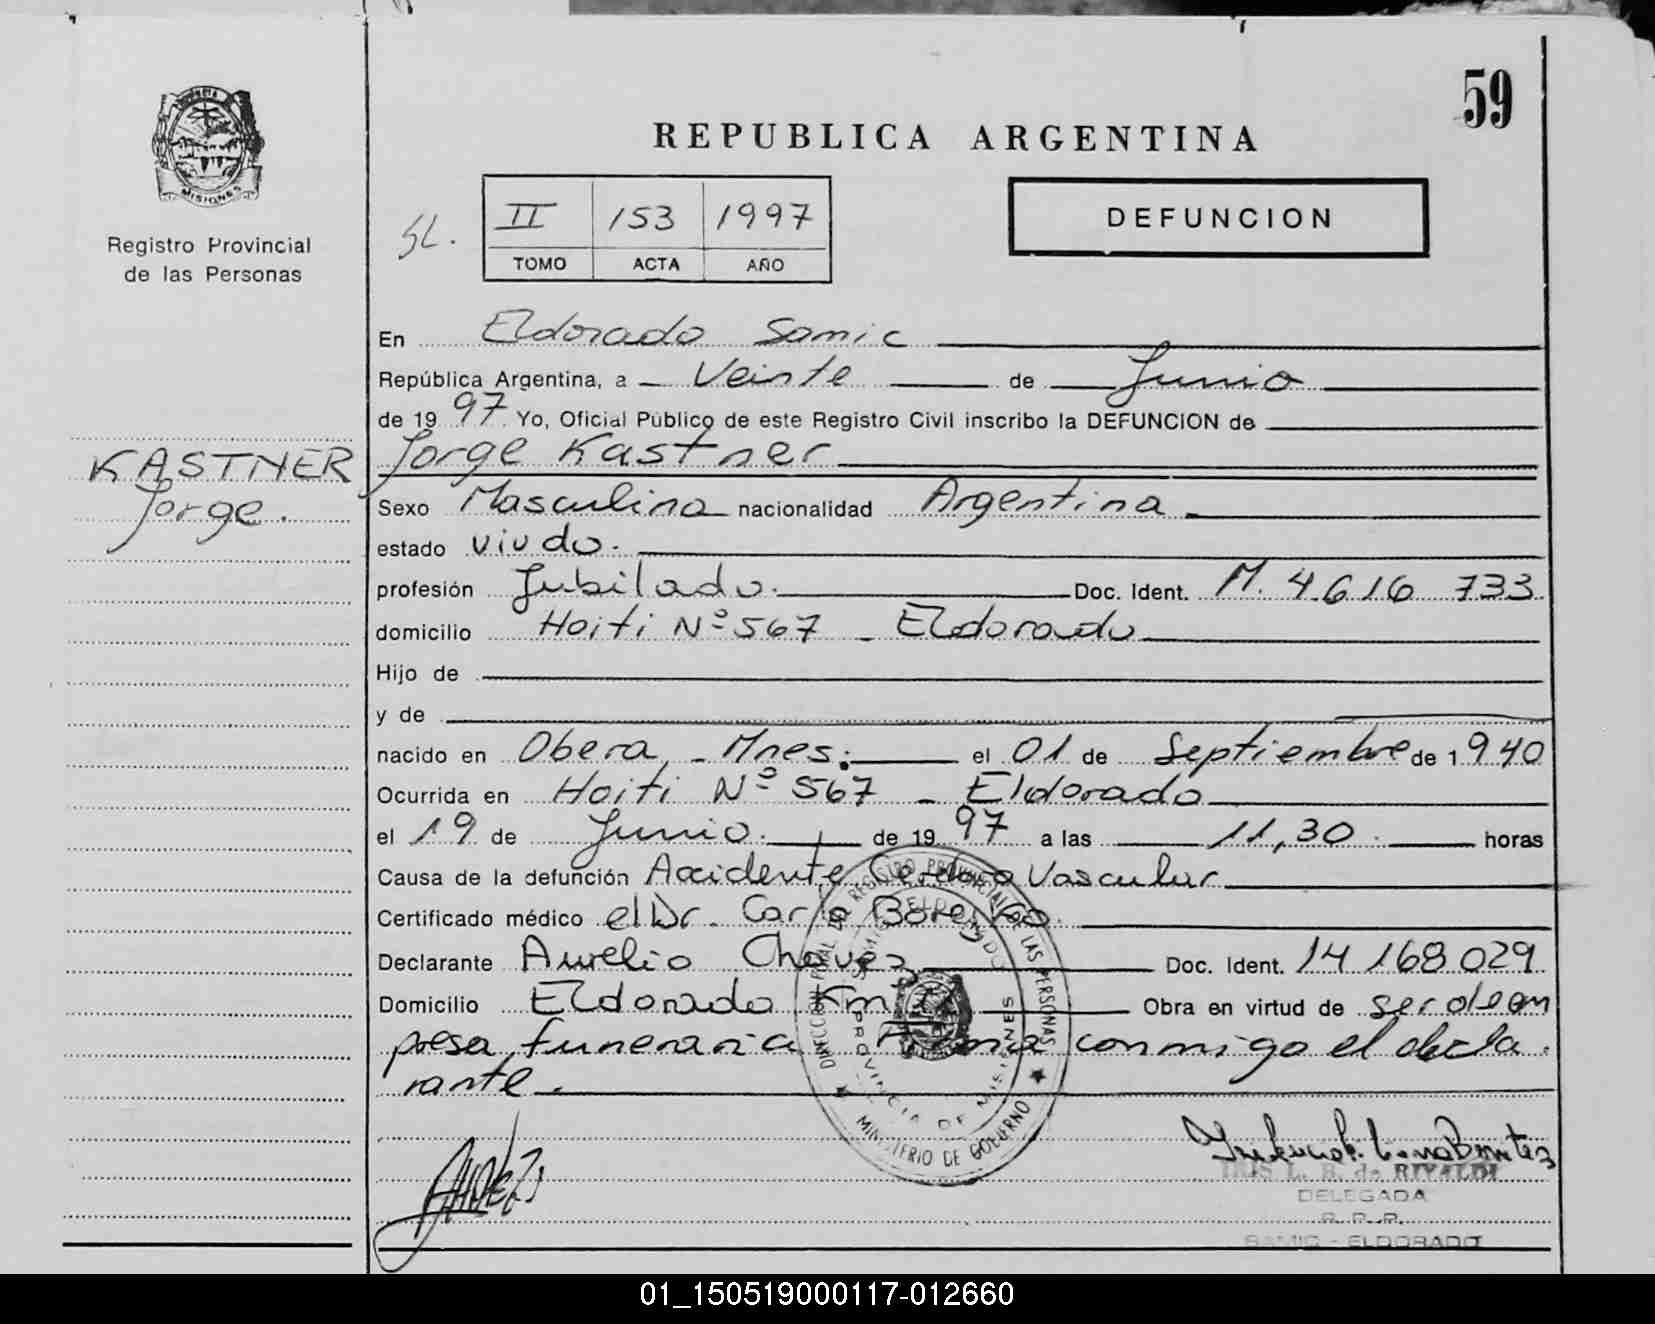 59
REPUBLICA ARGENTINA
MISIONES
Registro Provincial
de las Personas
SL.
II 153 1997
TOMO ACTA AÑO
DEFUNCION
En Eldorado Samic
República Argentina, a Veinte de Junio
de 1997 Yo, Oficial Público de este Registro Civil inscribo la DEFUNCION de
KASTNER
Jorge.
Jorge Kastner
Sexo Masculino nacionalidad Argentina
estado viudo.
profesión Jubilado. Doc. Ident. M. 4616 733
domicilio Haiti Nº 567 - Eldorado
Hijo de
y de
nacido en Obera - Mnes. el 01 de Septiembre de 1940
Ocurrida en Haiti Nº 567 - Eldorado
el 19 de Junio. de 1997 a las 11,30. horas
Causa de la defunción Accidente Cerebro Vascular
Certificado médico el Dr. Carlo
Declarante Aurelio Chavez Doc. Ident. 14 168 029
Domicilio Eldorado Km Obra en virtud de ser de em
presa funeraria Firma conmigo el decla.
rante.
DIRECCION GRAL DEL REGISTRO PROVINCIAL DE LAS PERSONAS
MINISTERIO DE GOBIERNO
SAMIC ELDORADO
PROVINCIA DE MISIONES
IRIS L. B. de RIVALDI
DELEGADA
R. P. P.
SAMIC - ELDORADO
01_150519000117-012660